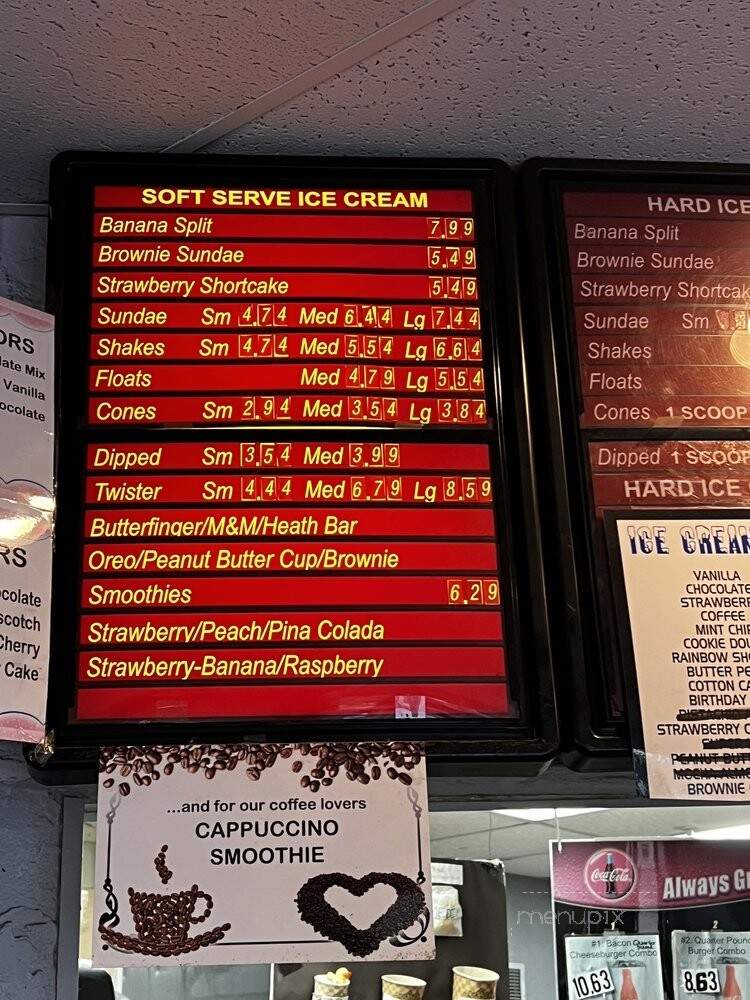 SOFT SERVE ICE CREAM
Banana Split 7.99
Brownie Sundae 5.49
Strawberry Shortcake 5.49
Sundae Sm 4.74 Med 6.44 Lg 7.44
Shakes Sm 4.74 Med 5.54 Lg 6.64
Floats Med 4.79 Lg 5.54
Cones Sm 2.94 Med 3.54 Lg 3.84
Dipped Sm 3.54 Med 3.99
Twister Sm 4.44 Med 6.79 Lg 8.59
Butterfinger/M&M/Heath Bar
Oreo/Peanut Butter Cup/Brownie
Smoothies 6.29
Strawberry/Peach/Pina Colada
Strawberry-Banana/Raspberry
...and for our coffee lovers
CAPPUCCINO
SMOOTHIE
ORS
late Mix
Vanilla
ocolate
RS
colate
scotch
Cherry
Cake
HARD ICE
Banana Split
Brownie Sundae
Strawberry Shortcak
Sundae Sm
Shakes
Floats
Cones 1 SCOOP
Dipped 1 SCOOP
HARD ICE
ICE CREAM
VANILLA
CHOCOLATE
STRAWBERR
COFFEE
MINT CHIP
COOKIE DOU
RAINBOW SH
BUTTER PE
COTTON CA
BIRTHDAY
STRAWBERRY C
PEANUT BUTT
MOCHA ALMO
BROWNIE
Coca-Cola
Always Gr
#1. Bacon
Cheeseburger Combo
10.63
2
#2. Quarter Pound
Burger Combo
8.63
menupix